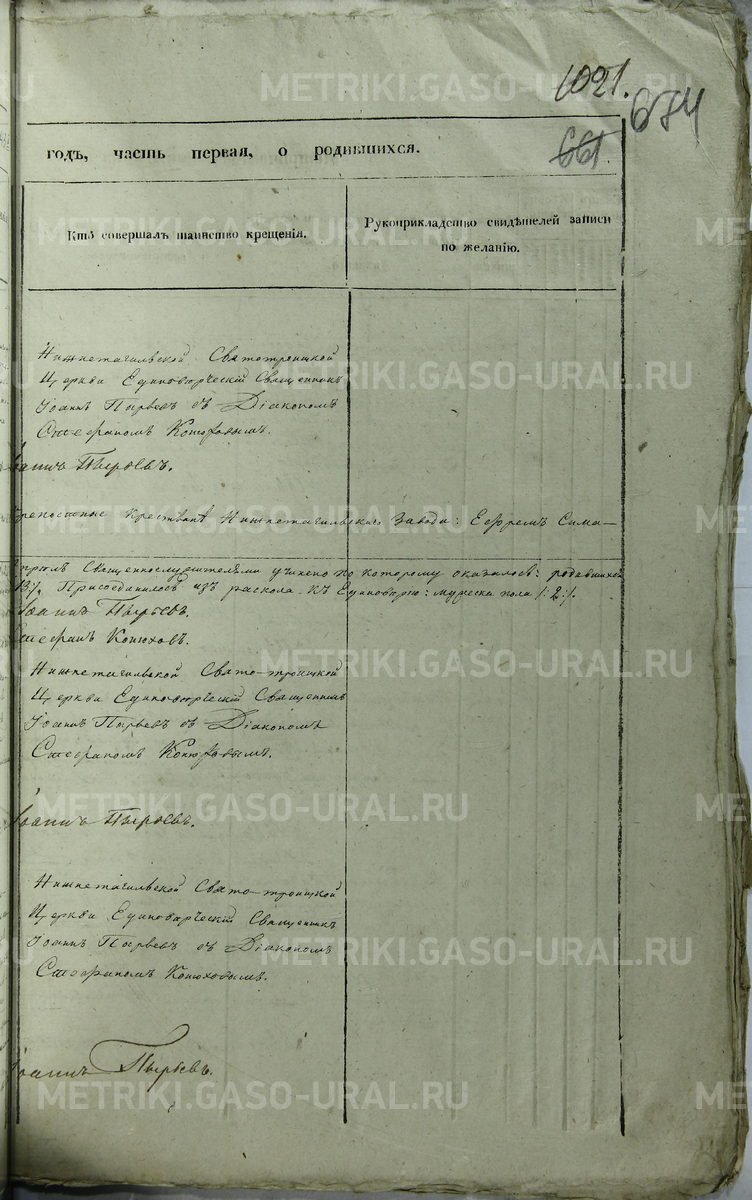 1021.
674
661
годъ, часть первая, о родившихся.
Кто совершалъ таинство крещенія.
Рукоприкладство свидѣтелей записи по желанію.
Нижнетагильской Святотроицкой
Церкви Единоверческій Священникъ
Іоаннъ Пырьевъ съ Діакономъ
Стефаномъ Конюховымъ.
Іоаннъ Пырьевъ.
крестьяне Нижнетагильскаго Завода: Ефремъ Сима-
Священнослужителями учинено по которому оказалось: родившихся
Присоединилось изъ раскола къ Единоверію: мужеска пола /:2:/.
Іоаннъ Пырьевъ.
Стефанъ Конюховъ.
Нижнетагильской Свято-троицкой
Церкви Единоверческій Священникъ
Іоаннъ Пырьевъ съ Діакономъ
Стефаномъ Конюховымъ.
Іоаннъ Пырьевъ.
Нижнетагильской Свято-троицкой
Церкви Единоверческій Священникъ
Іоаннъ Пырьевъ съ Діакономъ
Стефаномъ Конюховымъ.
Іоаннъ Пырьевъ.
METRIKI.GASO-URAL.RU